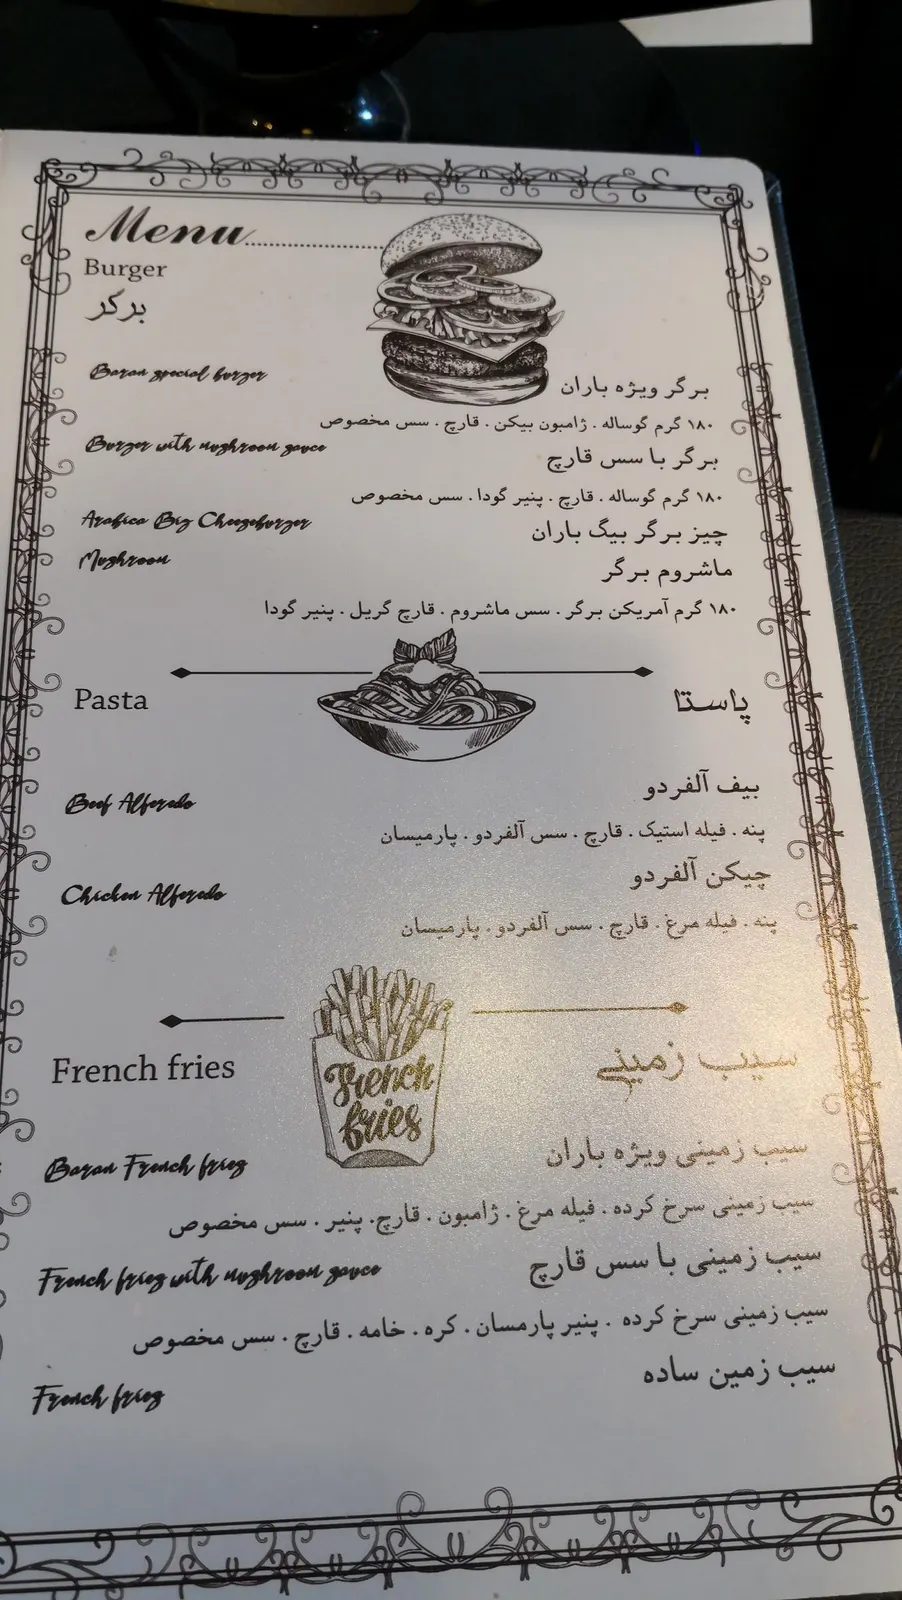 Menu
Burger
برگر
Baran special burger
برگر ویژه باران
۱۸۰ گرم گوساله . ژامبون بیکن . قارچ . سس مخصوص
Burger with mushroom sauce
برگر با سس قارچ
۱۸۰ گرم گوساله . قارچ . پنیر گودا . سس مخصوص
Arabica Big Cheeseburger
چیز برگر بیگ باران
Mushroom
ماشروم برگر
۱۸۰ گرم آمریکن برگر . سس ماشروم . قارچ گریل . پنیر گودا
Pasta
پاستا
Beef Alferedo
بیف آلفردو
پنه . فیله استیک . قارچ . سس آلفردو . پارمیسان
Chicken Alferedo
چیکن آلفردو
پنه . فیله مرغ . قارچ . سس آلفردو . پارمیسان
French fries
French
fries
سیب زمینی
Baran French fries
سیب زمینی ویژه باران
سیب زمینی سرخ کرده . فیله مرغ . ژامبون . قارچ. پنیر . سس مخصوص
French fries with mushroom sauce
سیب زمینی با سس قارچ
سیب زمینی سرخ کرده . پنیر پارمسان . کره . خامه . قارچ . سس مخصوص
French fries
سیب زمین ساده